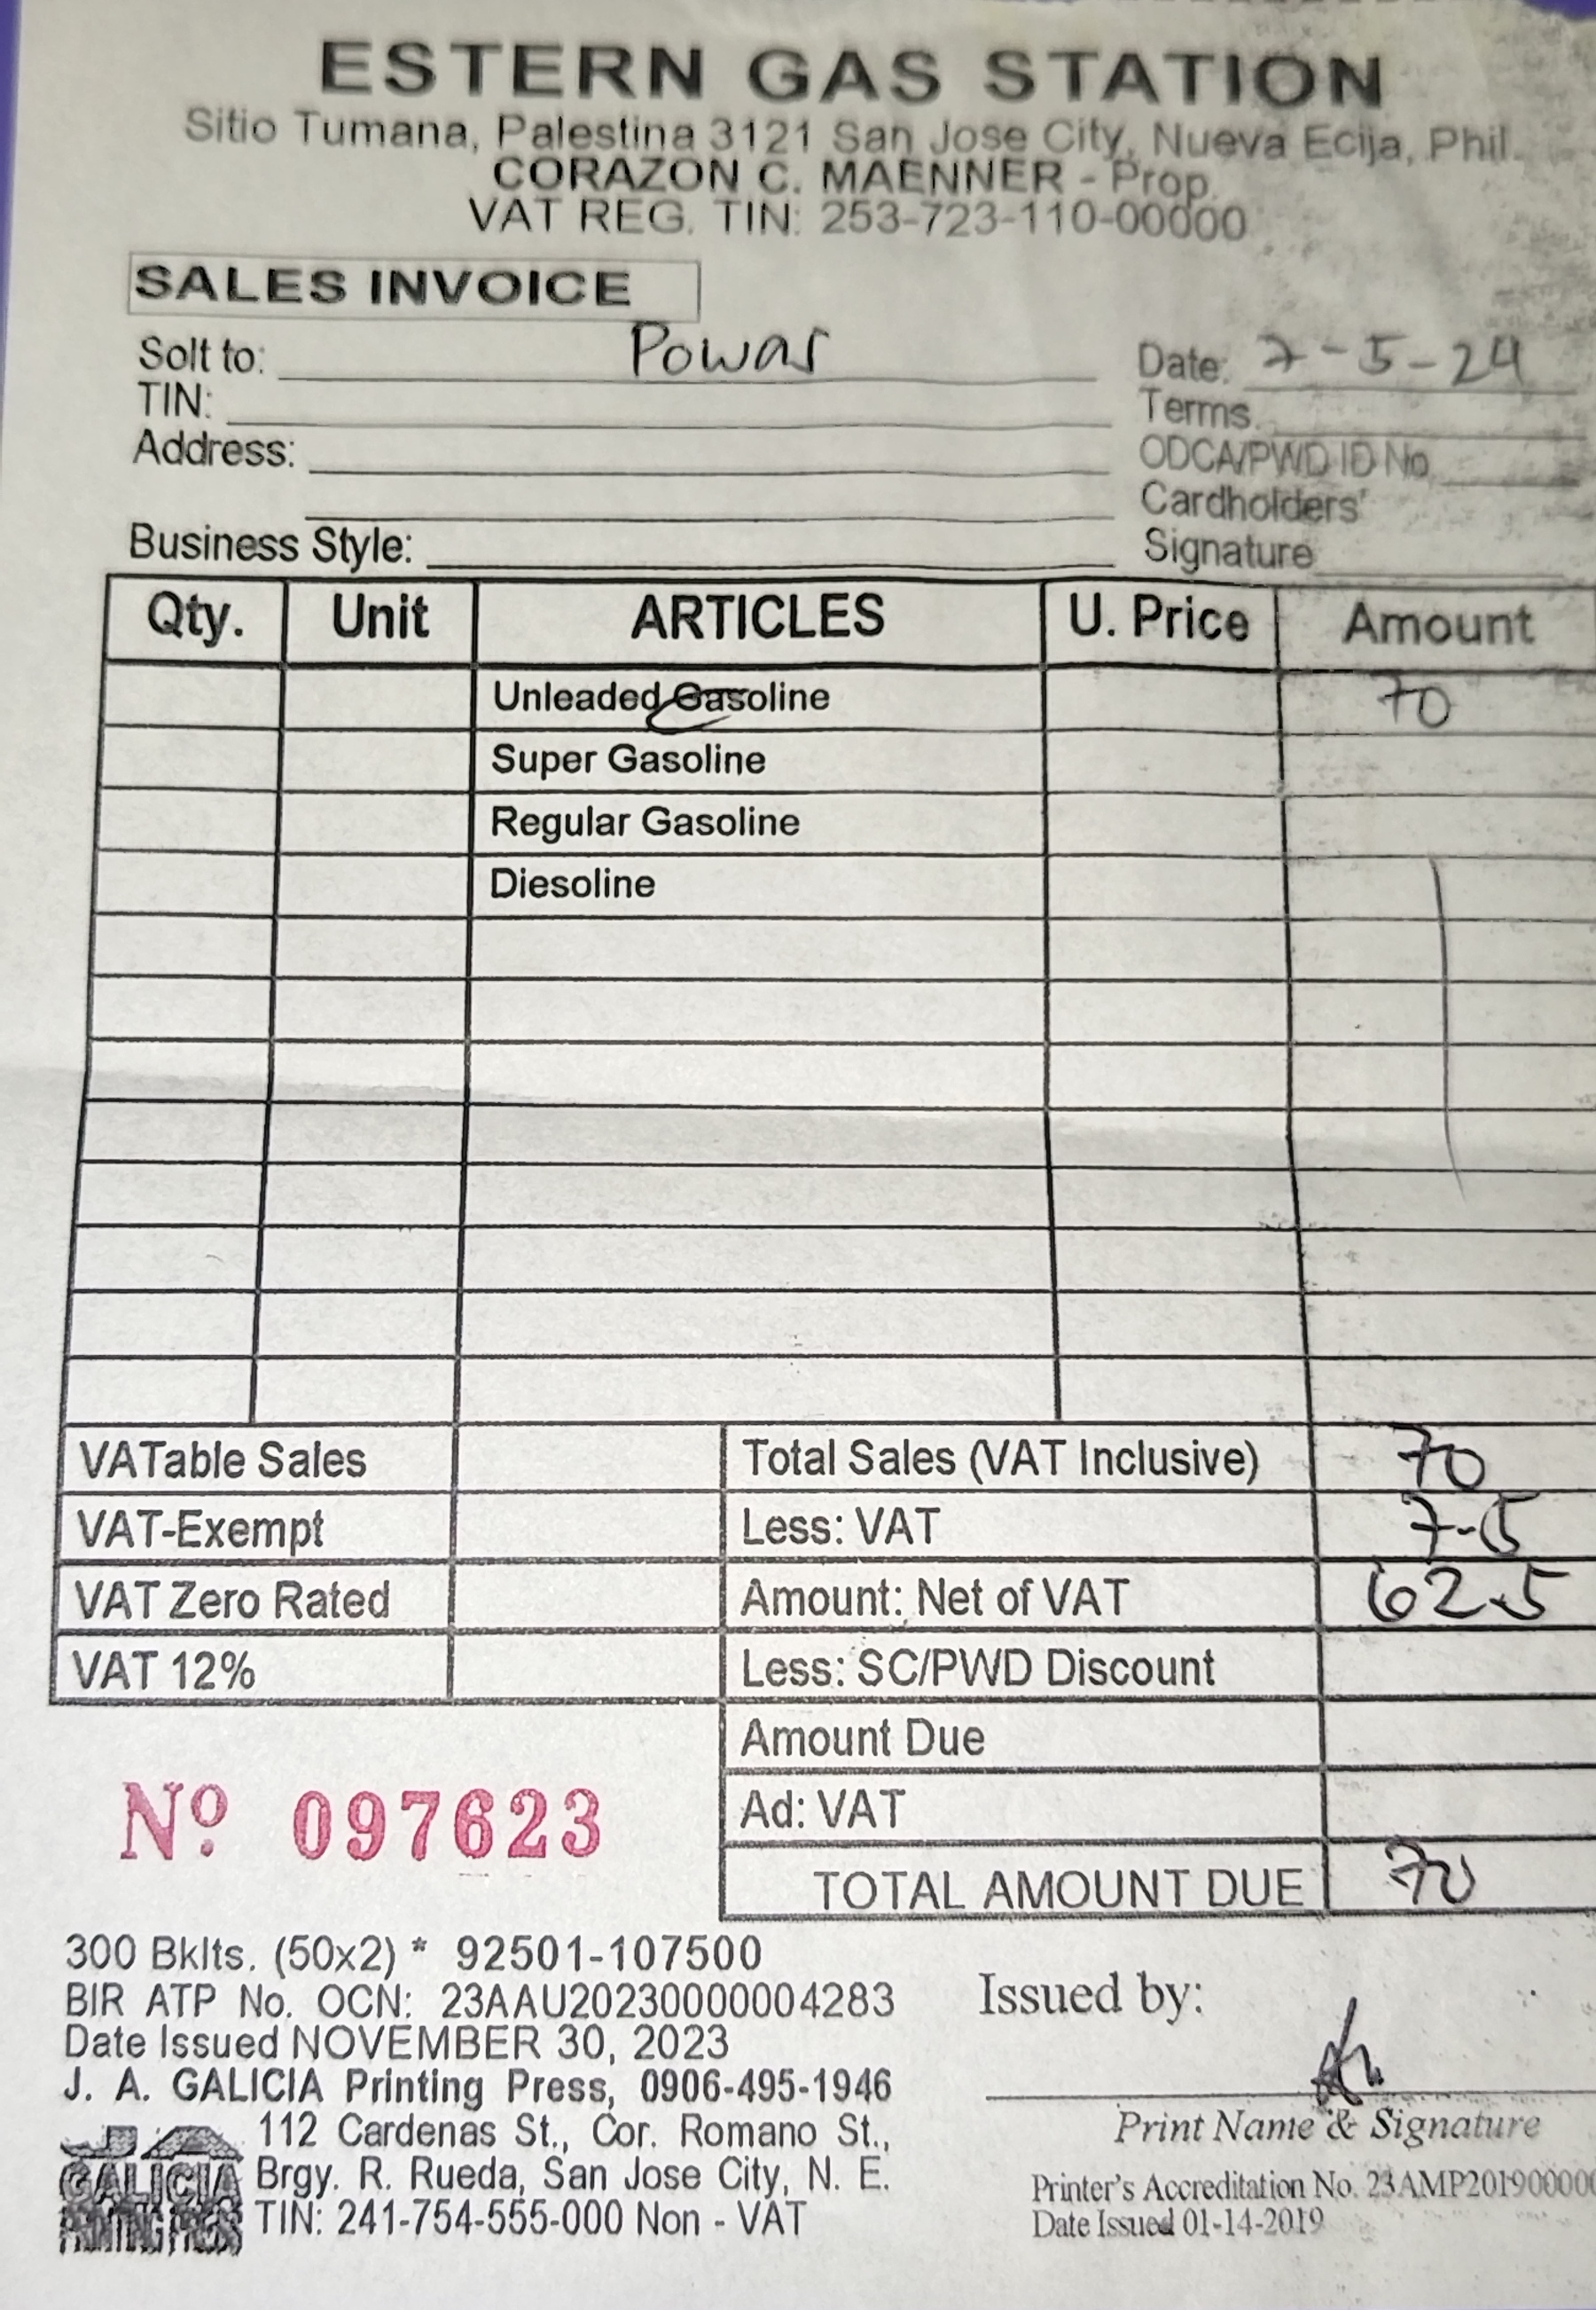 ESTERN GAS STATION
Sitio Tumana, Palestina 3121 San Jose City, Nueva Ecija, Phil.
CORAZON C. MAENNER - Prop.
VAT REG. TIN: 253-723-110-00000
SALES INVOICE
Solt to: Powas Date: 7-5-24
TIN: Terms
Address: ODCA/PWD ID No.
Cardholders'
Business Style: Signature
Qty. Unit ARTICLES U. Price Amount
Unleaded Gasoline 70
Super Gasoline
Regular Gasoline
Diesoline
VATable Sales Total Sales (VAT Inclusive) 70
VAT-Exempt Less: VAT 7.5
VAT Zero Rated Amount: Net of VAT 62.5
VAT 12% Less: SC/PWD Discount
Amount Due
Ad: VAT
Nº 097623
TOTAL AMOUNT DUE 70
300 Bklts. (50x2) * 92501-107500
BIR ATP No. OCN: 23AAU20230000004283
Date Issued NOVEMBER 30, 2023
J. A. GALICIA Printing Press, 0906-495-1946
112 Cardenas St., Cor. Romano St.,
Brgy. R. Rueda, San Jose City, N. E.
TIN: 241-754-555-000 Non - VAT
GALICIA
Issued by:
Print Name & Signature
Printer's Accreditation No. 23AMP201900000
Date Issued 01-14-2019